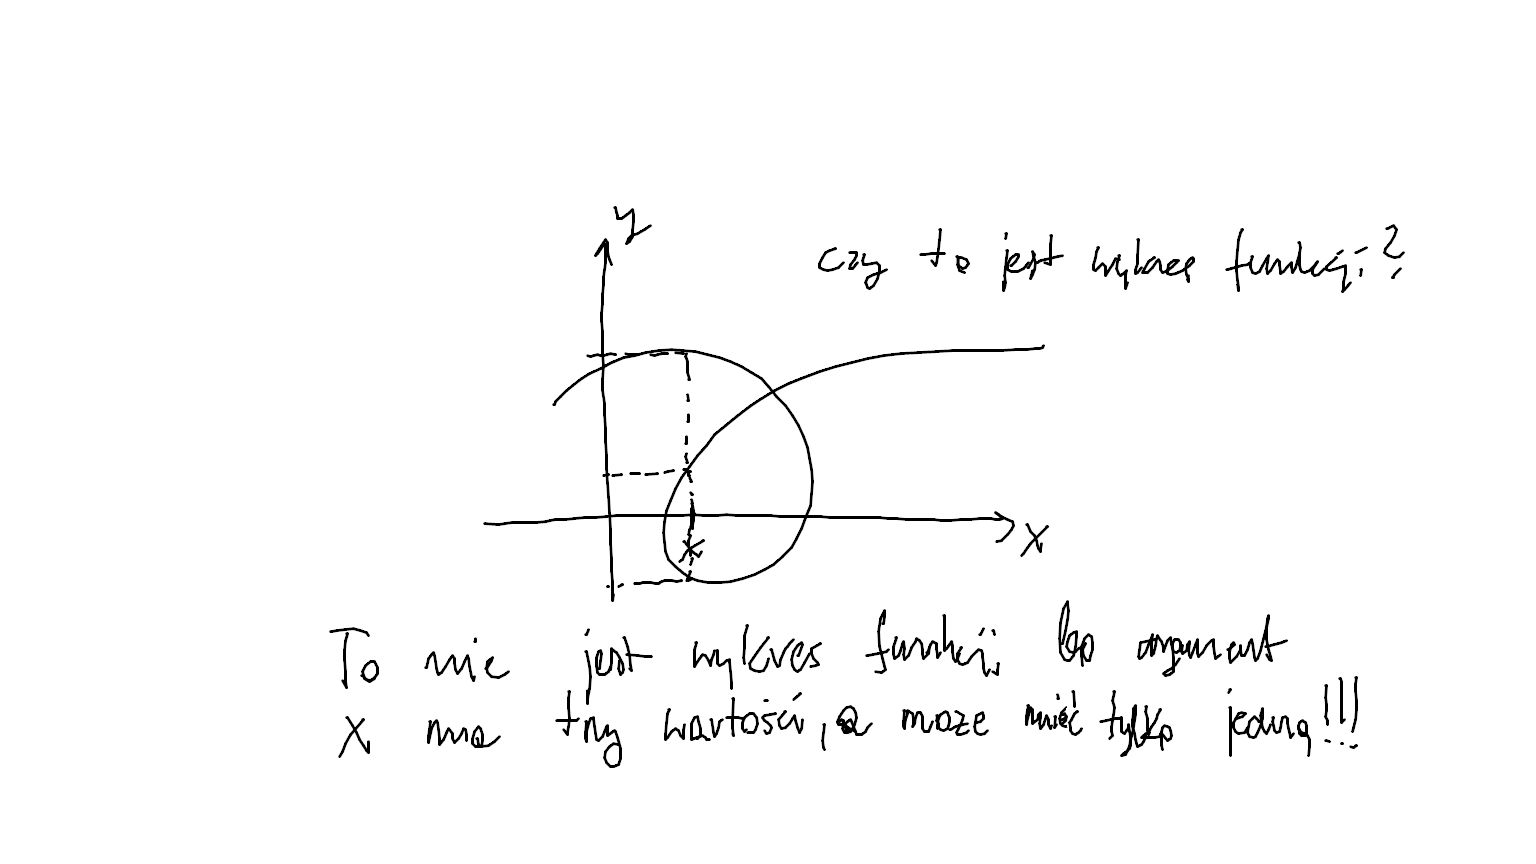 y
czy to jest wykres funkcji?
x
x
To nie jest wykres funkcji, bo argument
x ma trzy wartości, a może mieć tylko jedną!!!